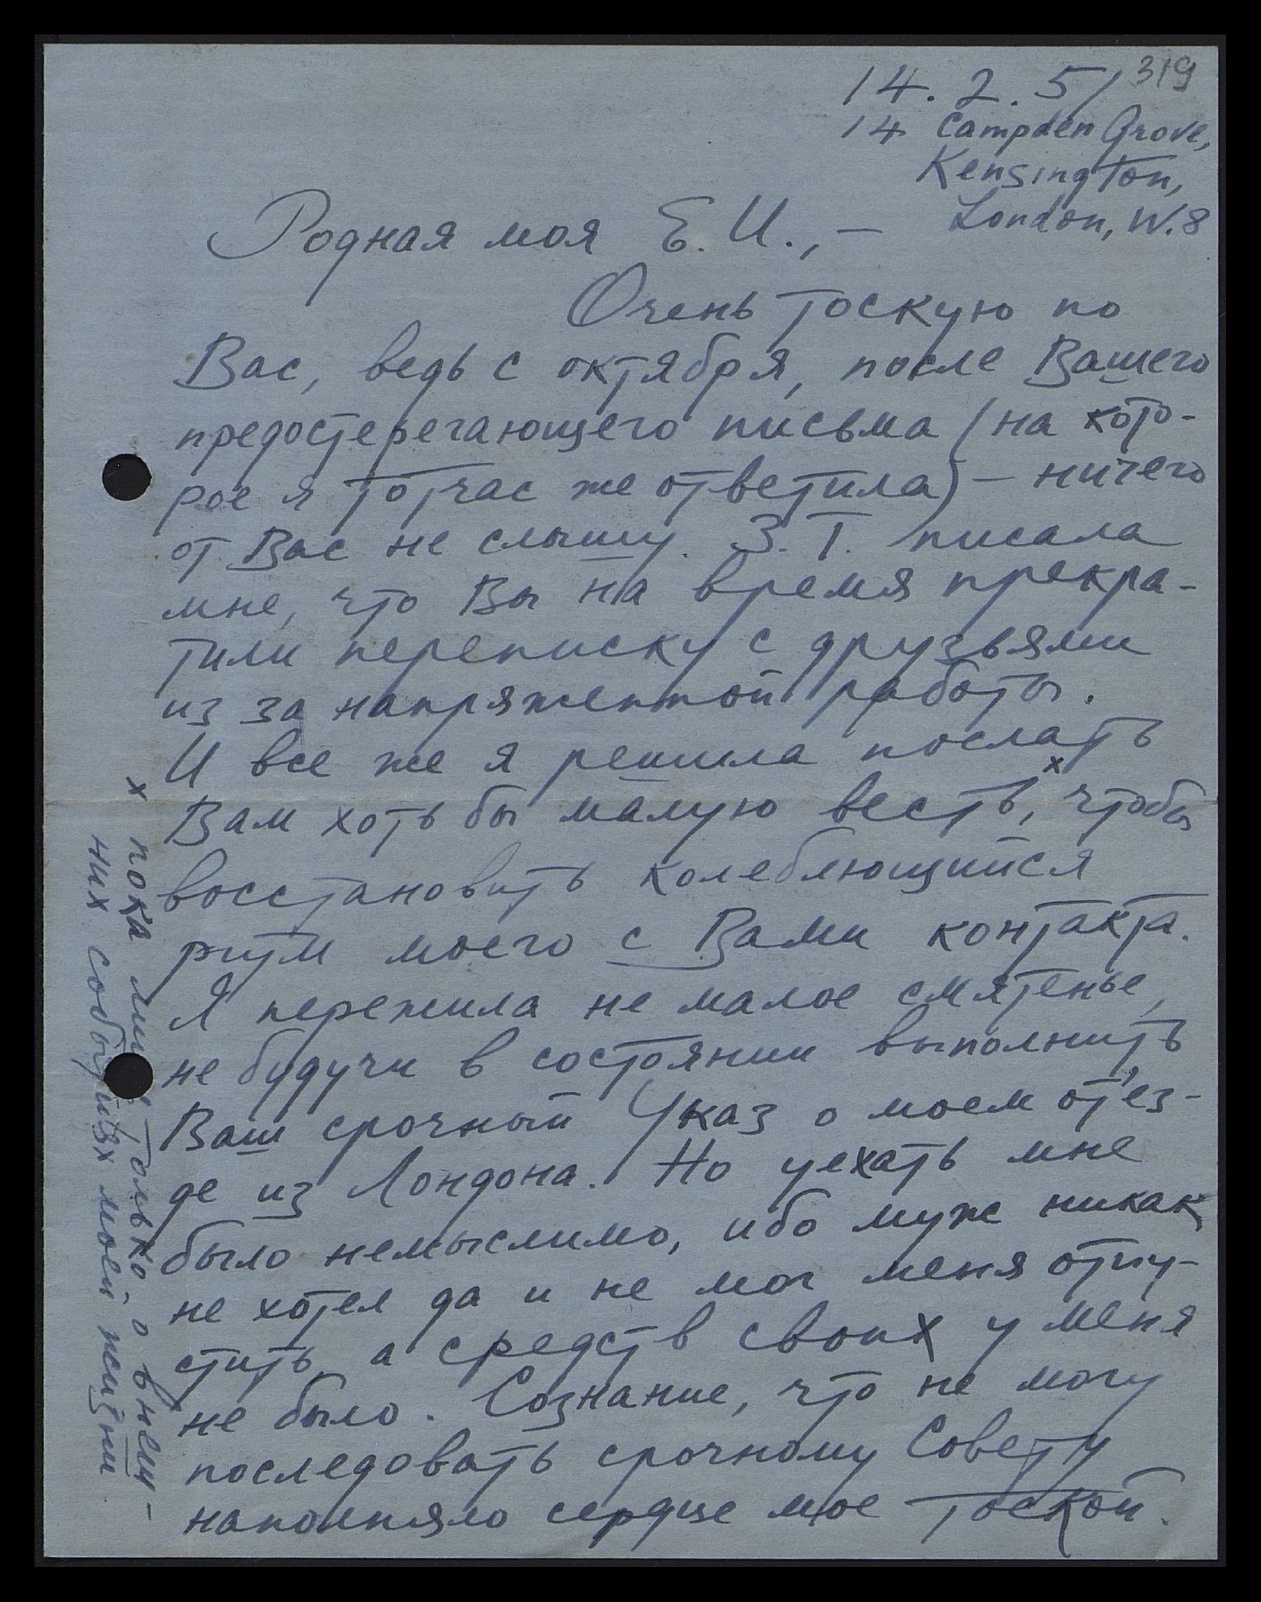 319
14. 2. 51
14 Campden Grove,
Kensington,
London, W.8
Родная моя Е. И., –
Очень тоскую по
Вас, ведь с октября, после Вашего
предостерегающего письма (на кото-
рое я тотчас же ответила) – ничего
от Вас не слышу. З. Г. писала
мне, что Вы на время прекра-
тили переписку с друзьями
из за напряженной работы.
И все же я решила послать
Вам хоть бы малую весть, х чтобы
восстановить колеблющийся
ритм моего с Вами контакта.
Я пережила не малое смятенье,
не будучи в состоянии выполнить
Ваш срочный Указ о моем от'ез-
де из Лондона. Но уехать мне
было немыслимо, ибо муж никак
не хотел да и не мог меня отпу-
стить, а средств своих у меня
не было. Сознание, что не могу
последовать срочному Совету
наполняло сердце мое тоской.
х пока лишь только о внеш-
них событиях моей жизни